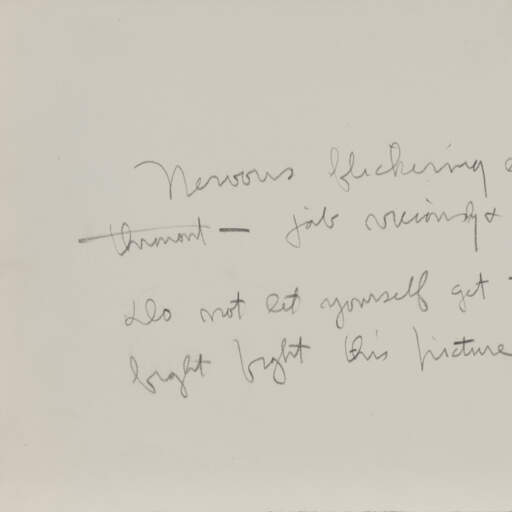 Nervous flickering
— jab viciously &
Do not let yourself get
fight fight this picture